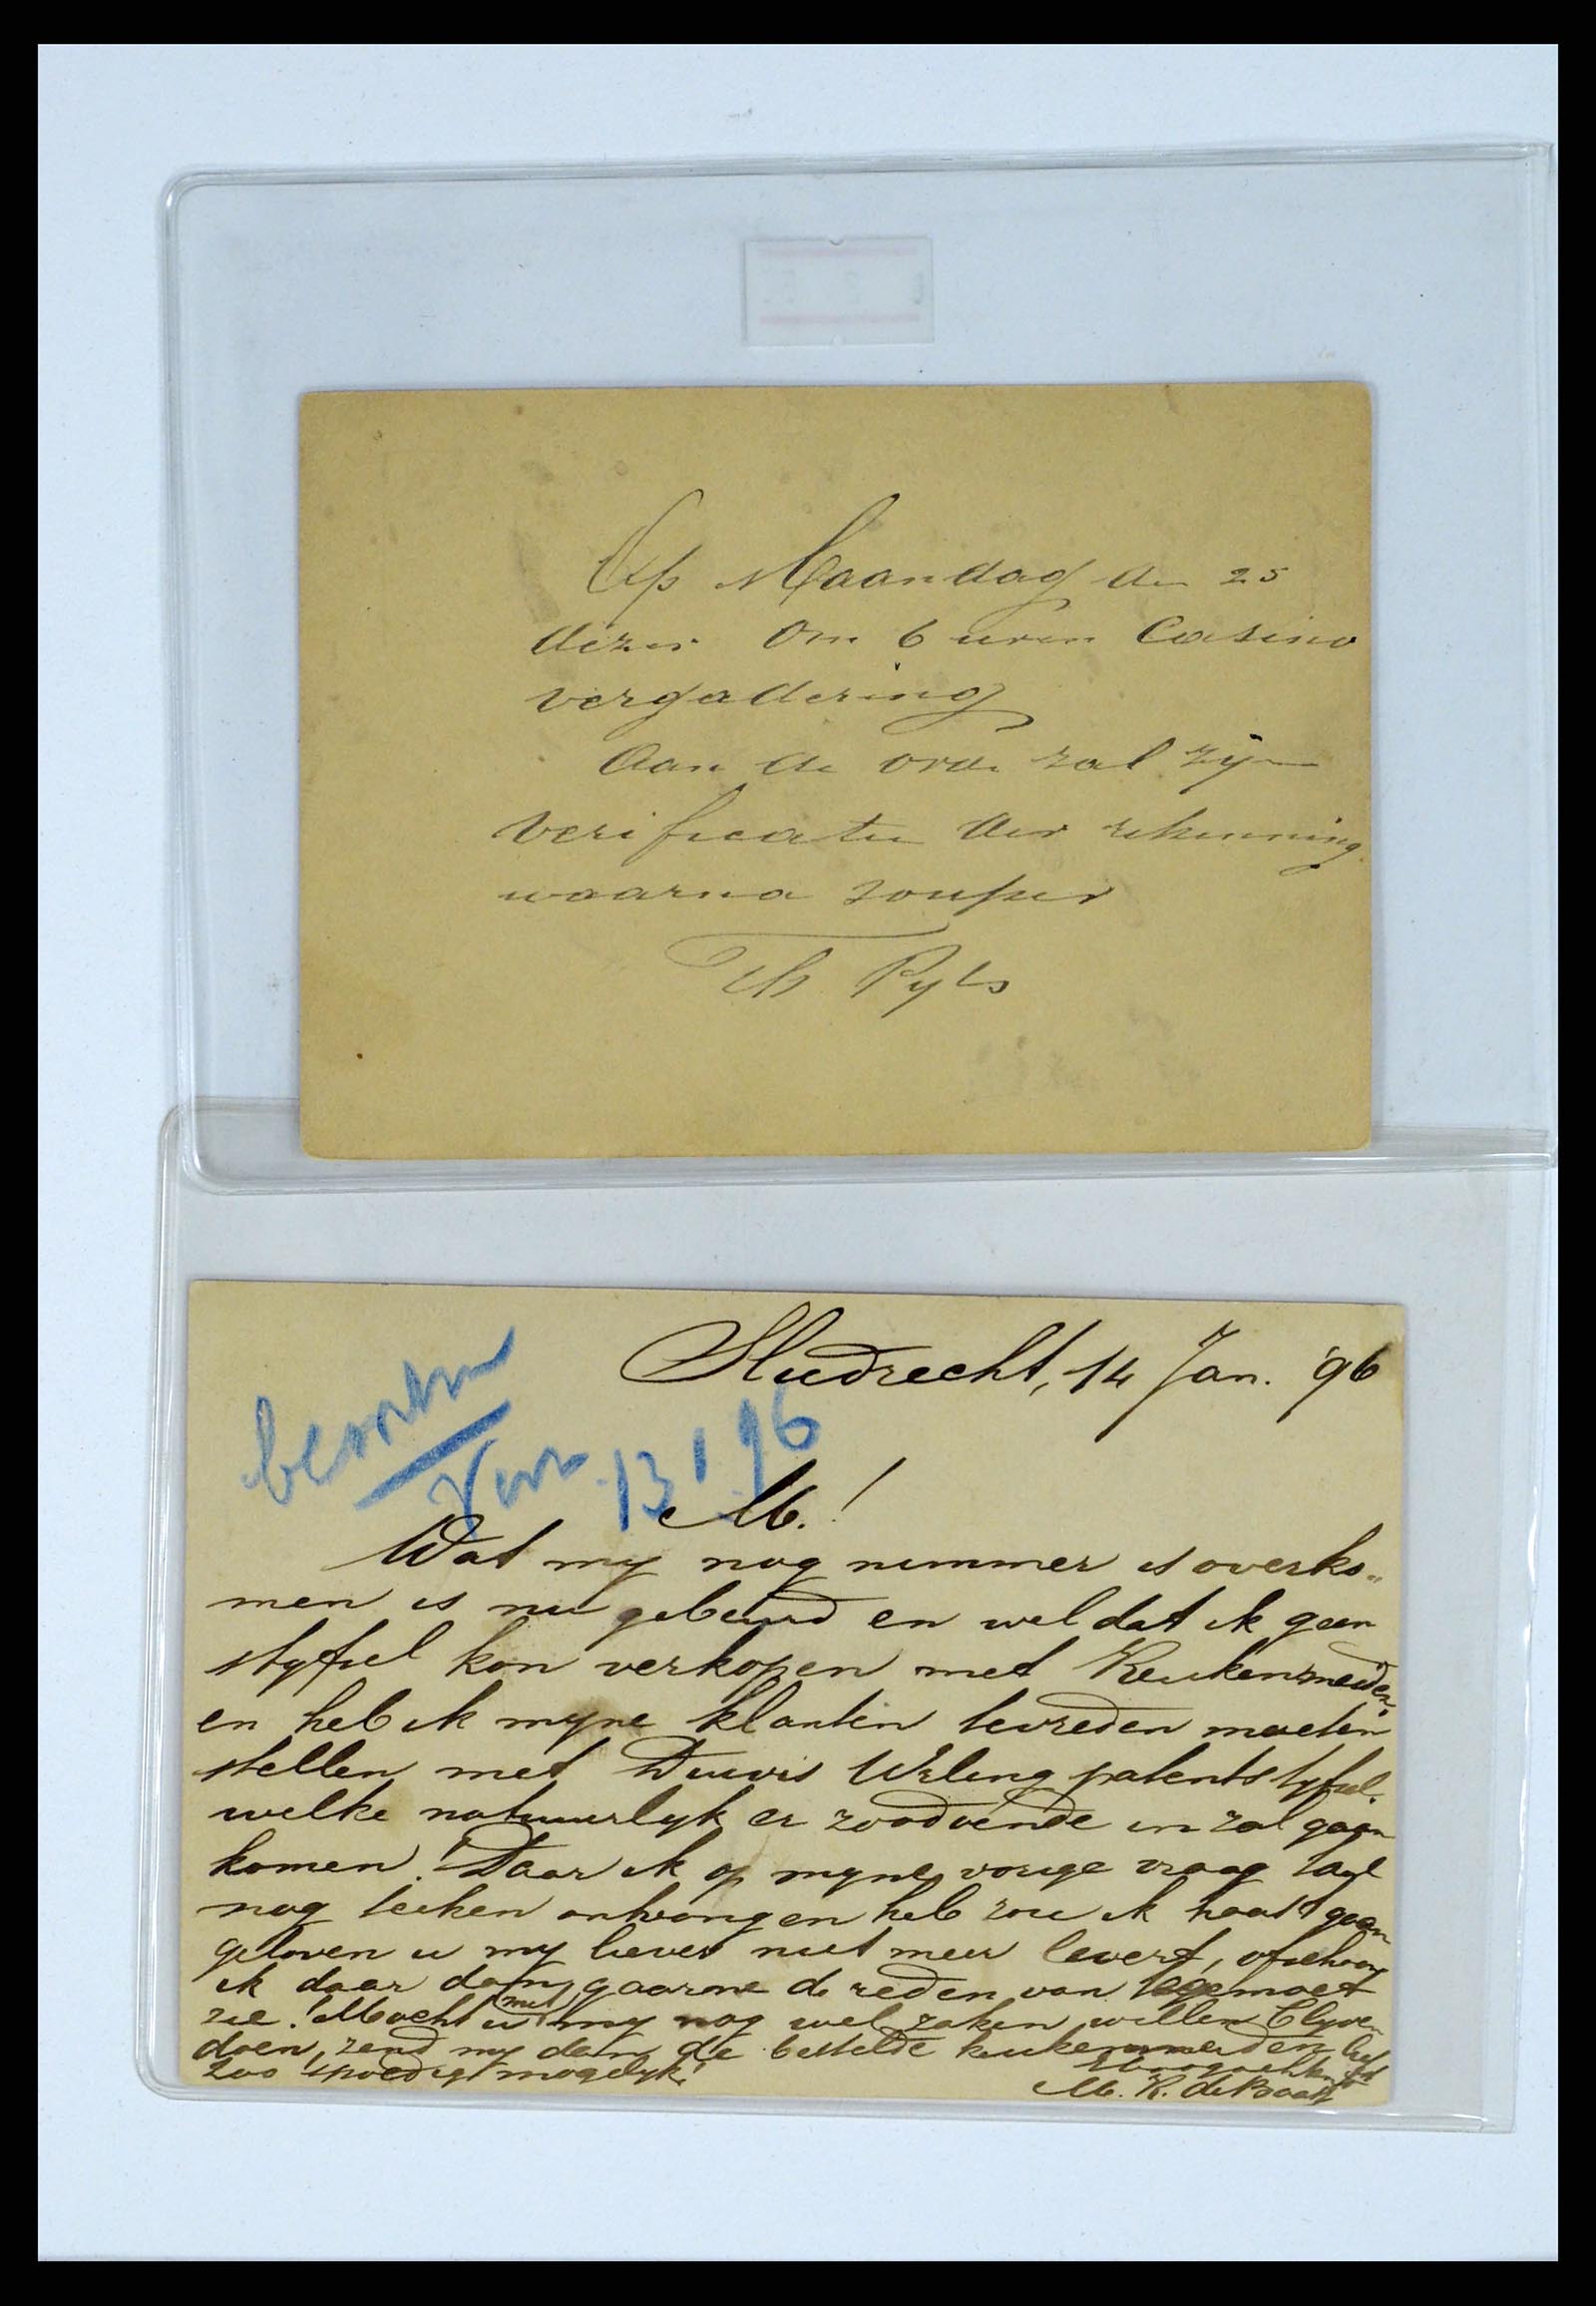 Op Maandag den 25
dezer om 6 uren Casino
vergadering
Aan de orde zal zijn
verificatie der rekenning
waarna souper
Th Pyls
Sliedrecht, 14 Jan. '96
13 1 96
M.!
Wat my nog nimmer is overko„
men is nu gebeurd en wel dat ik geen
styfsel kon verkopen met Keukenmeiden
en heb ik myne klanten tevreden moeten
stellen met Duivis Weling patentstyfsel.
welke natuurlyk er zoodoende in zal gaan
komen! Daar ik op myne vorige vraag taal
nog teeken ontvangen heb zou ik haast gaan
geloven u my liever niet meer levert, ofschoon
ik daar dan gaarne de reden van tegemoet
zie! Mocht u met my nog wel zaken willen blyven
doen, zend my dan de bestelde keukenmeiden
zoo spoedig mogelyk!
M. K. de Baat